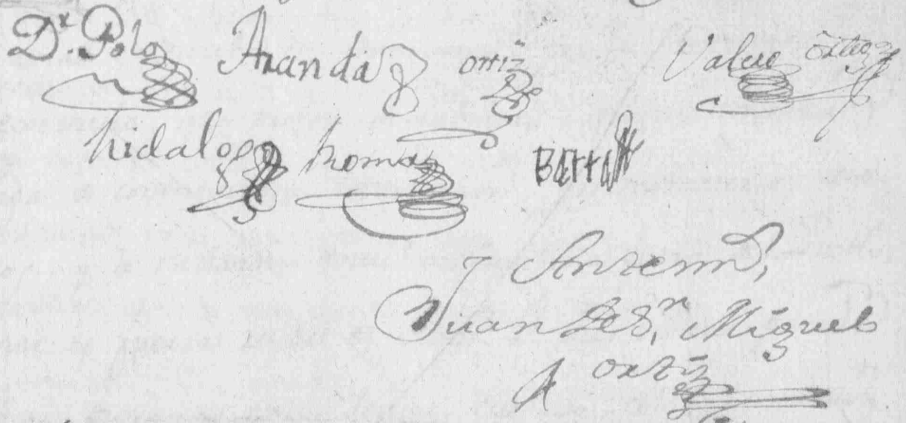 Dr. Polo Aranda ortiz Valero ortiz
hidalgo Roman
Antemi,
Juan de Sn. Miguel
ortiz